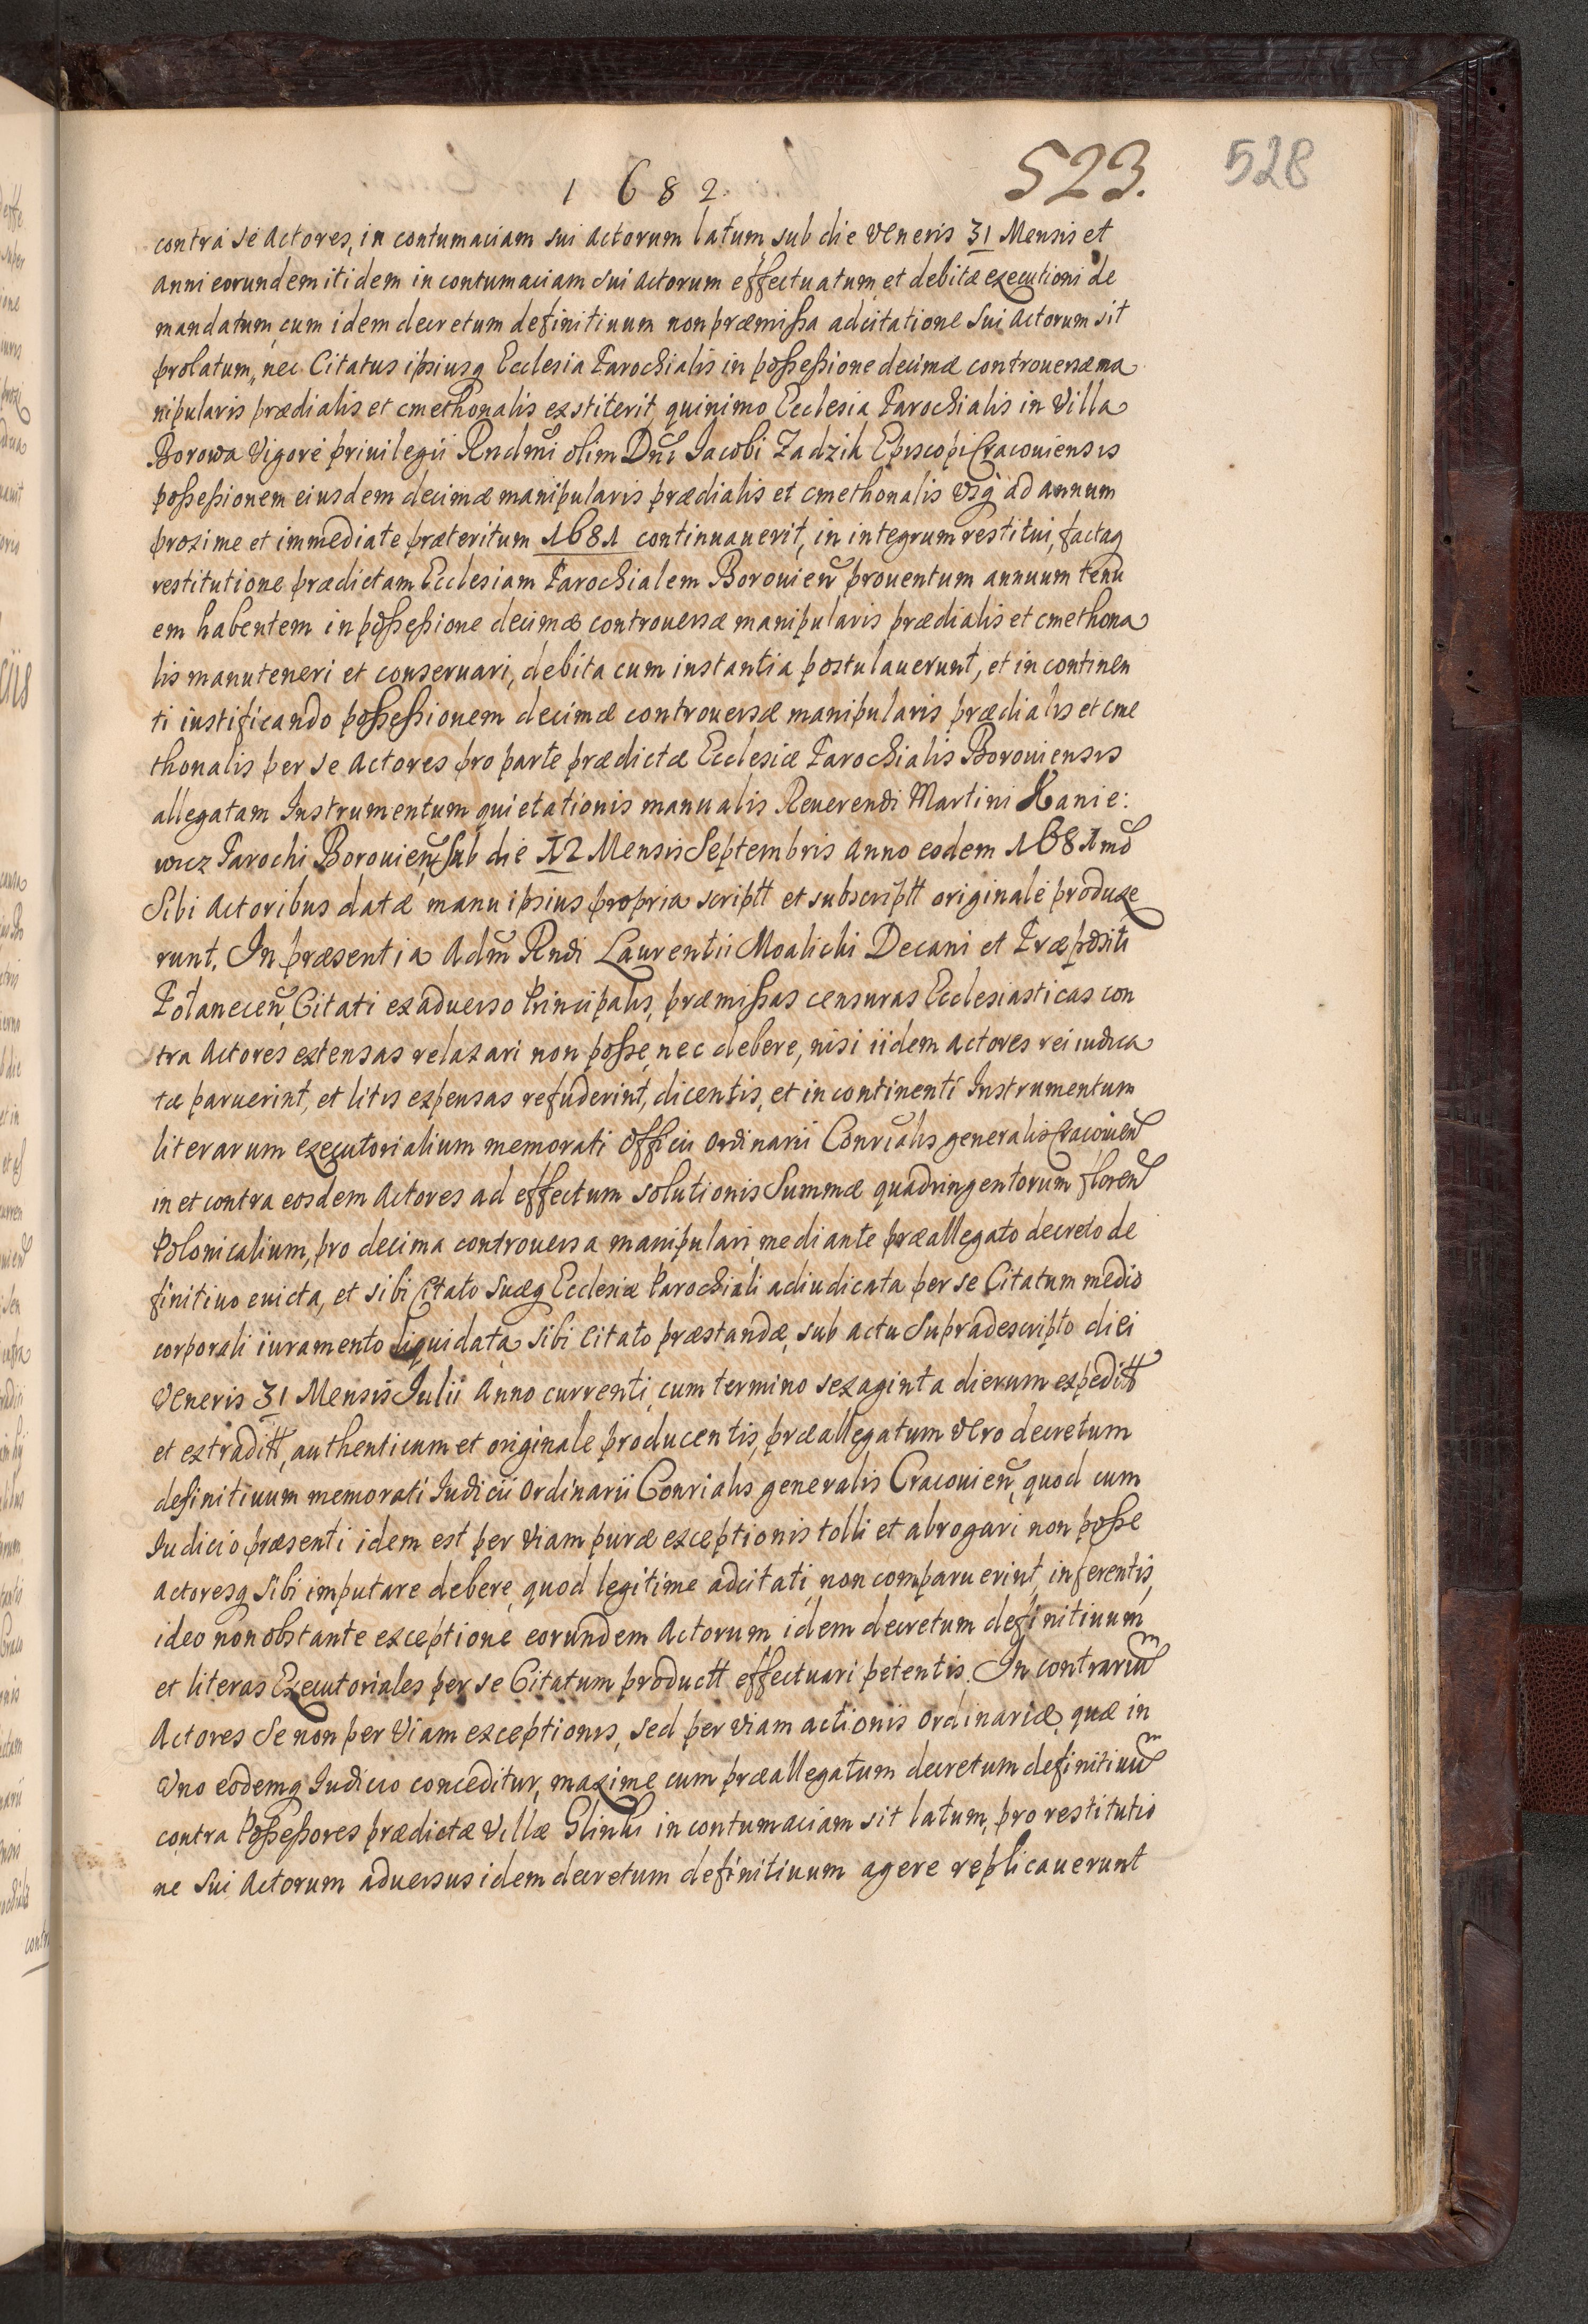 1682.
523.
528
contra se Actores, in contumaciam sui Actorum latum, sub die Veneris 31 Mensis et
Anni eorundem itidem in contumaciam sui Actorum effectuatum, et debitæ executioni de
mandatum, cum idem decretum definitiuum non præmissa adcitatione sui Actorum sit
prolatum, nec Citatus ipsiusq Ecclesia Parochialis in possessione decimæ controuersæ ma
nipularis prædialis et cmethonalis exstiterit, quinimo Ecclesia Parochialis in Villa
Borowa Vigore priuilegii Rndmi olim Dni Iacobi Zadzik Episcopi Cracouiensis
possessionem eiusdem decimæ manipularis prædialis et cmethonalis Vsq ad annum
proxime et immediate præteritum 1681 continuauerit, in integrum restitui, factaq
restitutione prædictam Ecclesiam Parochialem Borouien prouentum annuum tenu
em habentem in possessione decimæ controuersæ manipularis prædialis et cmethona
lis manuteneri et conseruari, debita cum instantia postulauerunt, et in continen
ti iustificando possessionem decimæ controuersæ manipularis prædialis et cme
thonalis per se Actores pro parte prædictæ Ecclesiæ Parochialis Borouiensis
allegatam Instrumentum quietationis manualis Reuerendi Martini Kanie:
wicz Parochi Borouien, sub die 12 Mensis Septembris Anno eodem 1681 mo
Sibi Actoribus datæ manu ipsius propria scriptt et subscriptt originale produxe
runt. In præsentia Adm Rndi Laurentii Moalichi Decani et Præpositi
Polanecen, Citati ex aduerso Principalis, præmissas censuras Ecclesiasticas con
tra Actores extensas relaxari non posse, nec debere, nisi iidem Actores rei iudica
tæ paruerint, et litis expensas refuderint, dicentis, et in continenti Instrumentum
literarum executorialium memorati Officii Ordinarii Conrialis generalis Cracouien
in et contra eosdem Actores ad effectum solutionis Summæ quadringentorum floren
Polonicalium, pro decima controuersa manipulari, mediante præallegato decreto de
finitiuo euicta, et sibi Citato suæq Ecclesiæ Parochiali adiudicata per se Citatum medio
corporali iuramento liquidata, sibi Citato præstandæ, sub actu supradescripto diei
Veneris 31 Mensis Iulii Anno currenti, cum termino sexaginta dierum expeditt
et extraditt, authenticum et originale producentis, præallegatum Vero decretum
definitiuum memorati Iudicii Ordinarii Conrialis generalis Cracouien, quod cum
Iudicio præsenti idem est per Viam puræ exceptionis tolli et abrogari non posse
Actoresq sibi imputare debere, quod legitime adcitati non comparuerint, inferentis,
ideo non obstante exceptione eorundem Actorum idem decretum definitiuum
et literas Executoriales per se Citatum productt effectuari petentis. In contrarium
Actores se non per Viam exceptionis, sed per Viam actionis ordinariæ, quæ in
Vno eodemq Iudicio conceditur, maxime cum præallegatum decretum definitiuum
contra Possessores prædictæ Villæ Glinki in contumaciam sit latum, pro restitutio
ne sui Actorum aduersus idem decretum definitiuum agere replicauerunt